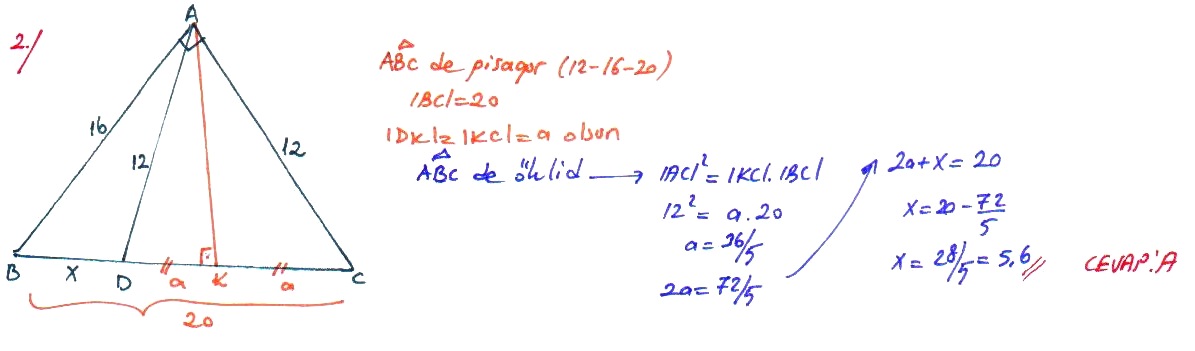 2./
A
16
12
12
B
x
D
a
K
a
C
20
ABC de pisagor (12-16-20)
|BC|=20
|DK|=|KC|=a olsun
ABC de öklid → |AC|² = |KC|.|BC|
12² = a.20
a = 36/5
2a = 72/5
2a+x = 20
x = 20 - 72/5
x = 28/5 = 5,6//
CEVAP:A